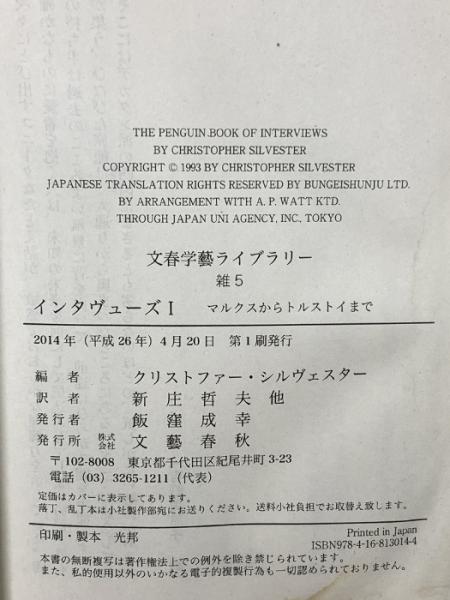 THE PENGUIN BOOK OF INTERVIEWS
BY CHRISTOPHER SILVESTER
COPYRIGHT © 1993 BY CHRISTOPHER SILVESTER
JAPANESE TRANSLATION RIGHTS RESERVED BY BUNGEISHUNJU LTD.
BY ARRANGEMENT WITH A. P. WATT KTD.
THROUGH JAPAN UNI AGENCY, INC., TOKYO
文春学藝ライブラリー
雑5
インタヴューズⅠ マルクスからトルストイまで
2014年（平成26年）4月20日 第1刷発行
編者 クリストファー・シルヴェスター
訳者 新庄哲夫他
発行者 飯窪成幸
発行所 株式会社 文藝春秋
〒102-8008 東京都千代田区紀尾井町3-23
電話（03）3265-1211（代表）
定価はカバーに表示してあります。
落丁、乱丁本は小社製作部宛にお送りください。送料小社負担でお取替え致します。
印刷・製本 光邦
Printed in Japan
ISBN978-4-16-813014-4
本書の無断複写は著作権法上での例外を除き禁じられています。
また、私的使用以外のいかなる電子的複製行為も一切認められておりません。